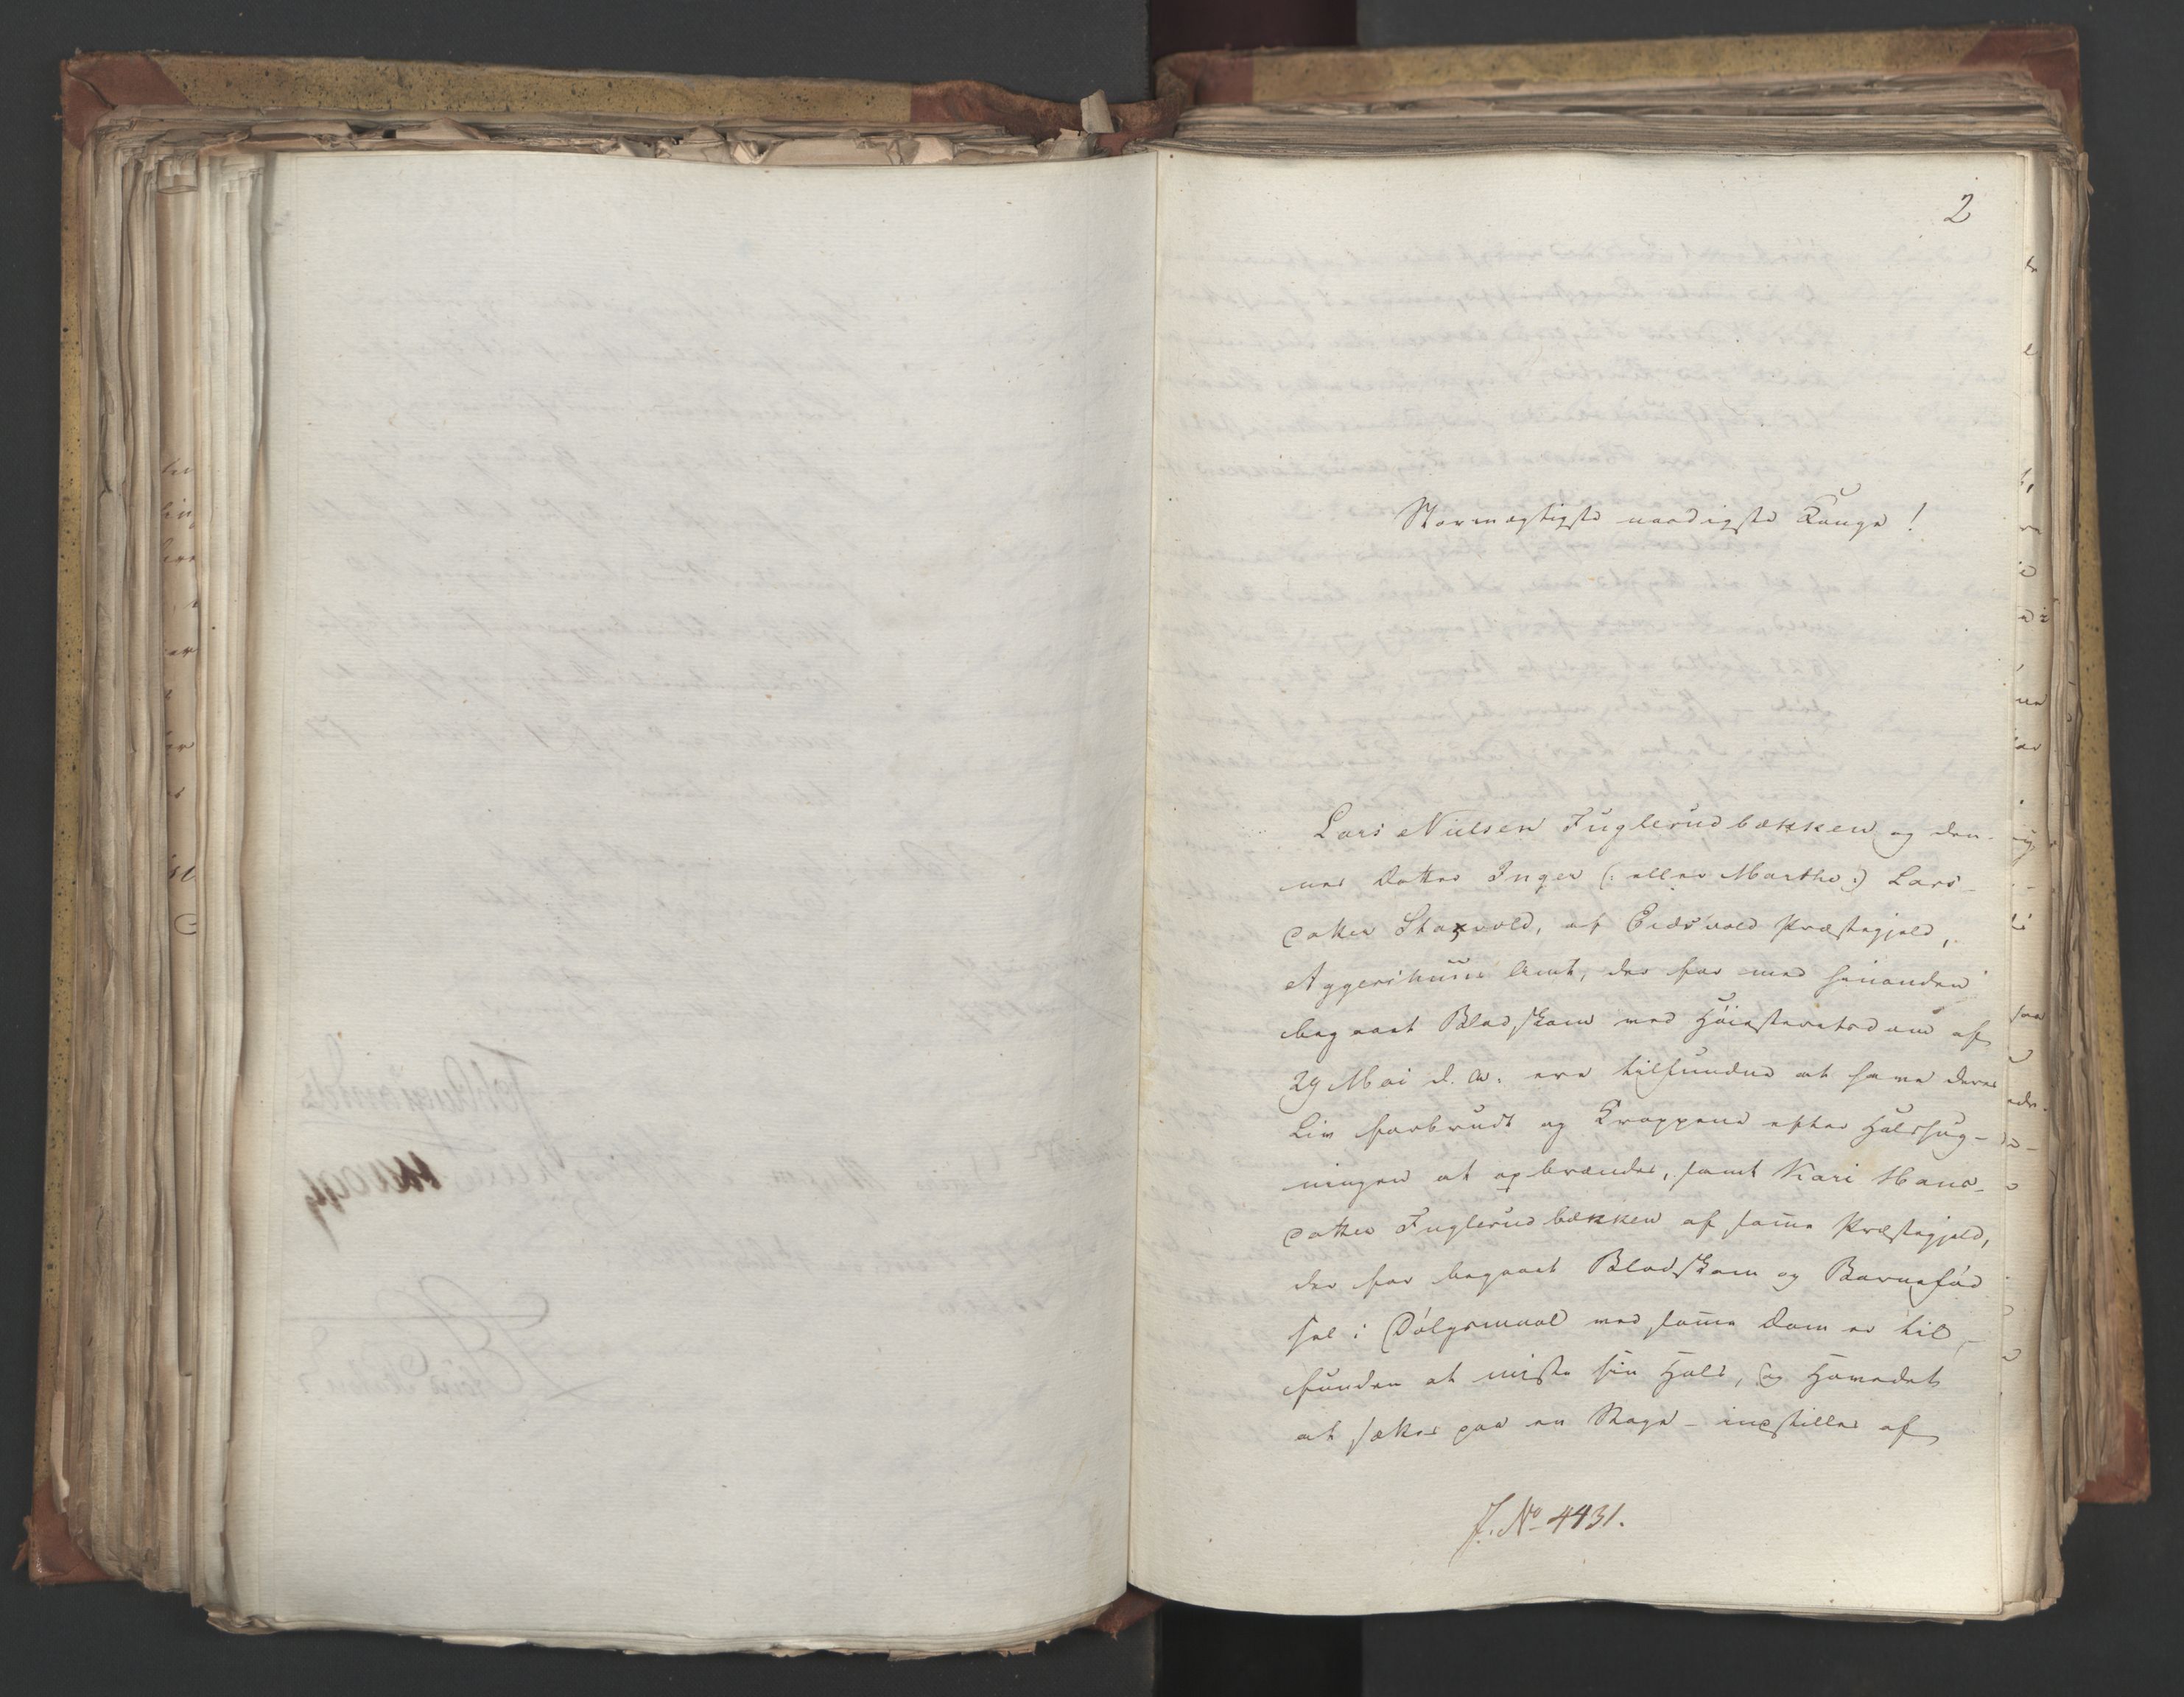 2
Stormægtigste naadigste Konge!
Lars Nielsen Fuglerudbækken og den-
nes Datter Inger (: eller Marthe :) Lars-
datter Starvold, af Eidsvold Præstegjeld,
Aggershuus Amt, der for med hinanden
begaaet Blodskam ved Høiesteretsdom af
29 Mai d. A. ere tilfundne at have deres
Liv forbrudt og Kroppene efter Halshug-
ningen at opbrændes, samt Kari Hans-
datter Fuglerudbækken af samme Præstegjeld,
der for begaaet Blodskam og Barnefød
sel i Dølgsmaal ved samme Dom er til-
funden at miste sin Hals, og Hovedet
at sættes paa en Stage - indstilles af
J. No 4431.